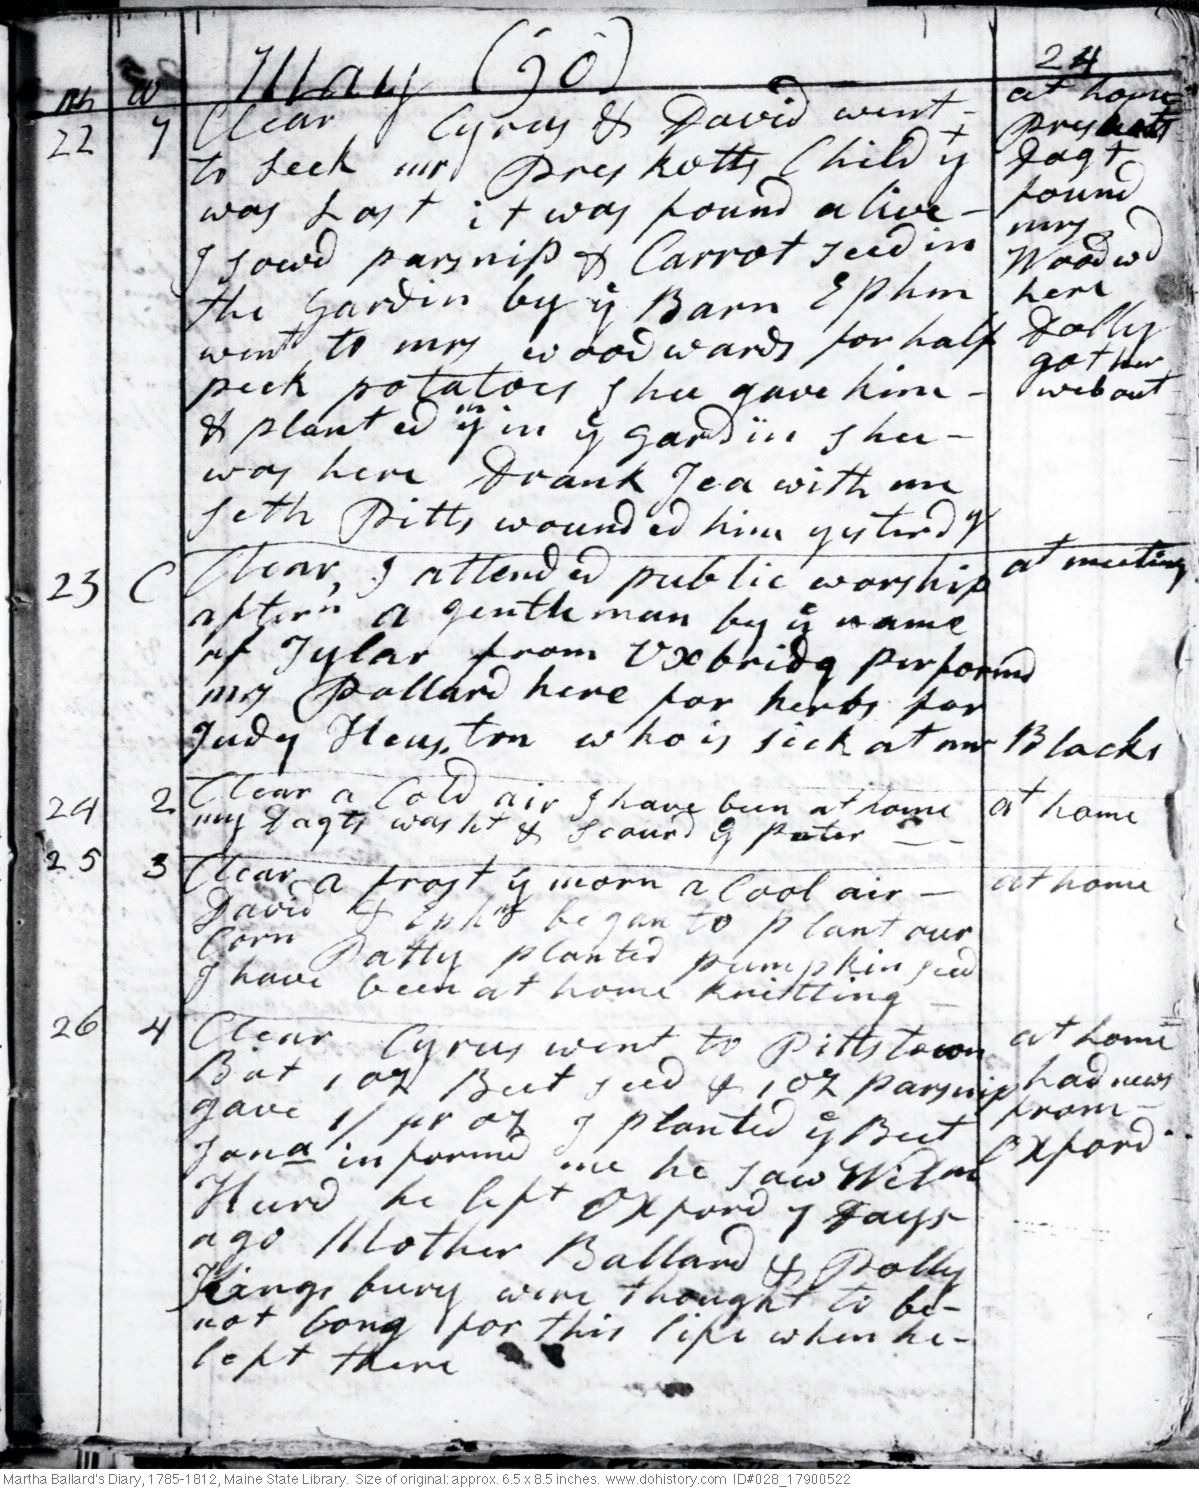 May (90)
24
mh w
22 7
Clear Cyrus & David went -
to seek mr Preskotts Child yt
was Lost it was found alive -
I sowd parsnip & Carrot seed in
the Gardin by ye Barn Ephm
went to mrs woodwards for half
peck potatoes shee gave him -
& planted ym in ye gardin shee -
was here Drank Tea with me
Seth Pitts wounded him yisterdy
at home
Preskotts
Dagt
found
mrs
Woodwd
here
Dolly
got her
web out
23 C
Clear, I attended public worship
aftern a gentleman by ye name
of Tylar from Uxbridg performd
mrs Pollard here for herbs for
Judy Heuston who is sick at mr Blacks
at meeting
24 2
Clear a Cold air I have been at home
my Dagts washt & scourd ye puter
at home
25 3
Clear a frost ye morn a Cool air -
David & Ephm began to plant our
Corn Patty planted pumpkin seed
I have been at home knitting
at home
26 4
Clear Cyrus went to Pittstown
Bot 1 oz Beet seed & 1 oz parsnip
gave 1/ pr oz I planted ye Beet
Jona informd me he saw Wilm
Hurd he left Oxford 7 Days
ago Mother Ballard & Polly
Kingsbury were thought to be -
not long for this life when he -
left there
at home
had news
from -
Oxford
Martha Ballard's Diary, 1785-1812, Maine State Library. Size of original: approx. 6.5 x 8.5 inches. www.dohistory.com ID#028_17900522